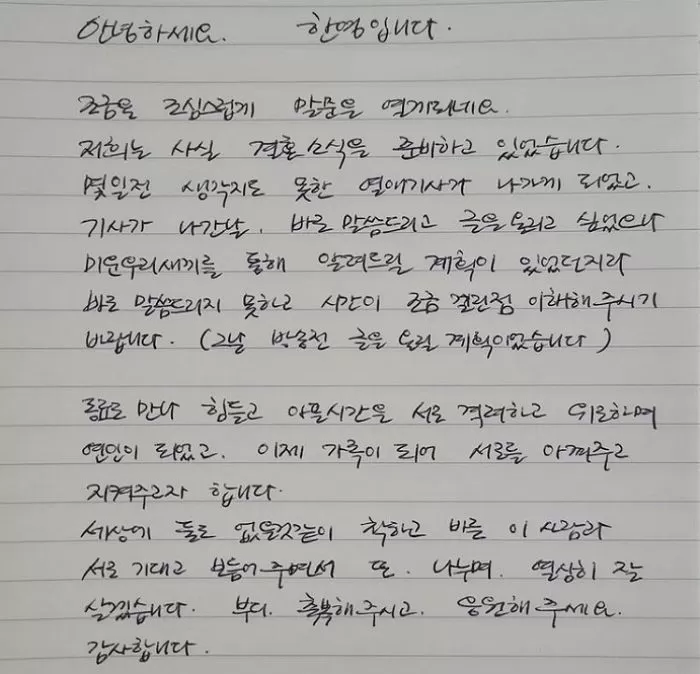 안녕하세요. 한영입니다.
조금은 조심스럽게 말문을 열게되네요.
저희는 사실 결혼소식을 준비하고 있었습니다.
몇일전 생각지도 못한 열애기사가 나가게 되었고.
기사가 나간날. 바로 말씀드리고 글을 올리고 싶었으나
미운우리새끼를 통해 알려드릴 계획이 있었던지라
바로 말씀드리지 못하고 시간이 조금 걸린점 이해해주시기
바랍니다. (그날 방송전 글을 올릴 계획이었습니다)
동료로 만나 힘들고 아픈시간을 서로 격려하고 위로하며
연인이 되었고. 이제 가족이 되어 서로를 아껴주고
지켜주고자 합니다.
세상에 둘도 없을것같이 착하고 바른 이 사람과
서로 기대고 보듬어주면서 또. 나누며. 열심히 잘
살겠습니다. 부디. 축복해주시고. 응원해주세요.
감사합니다.